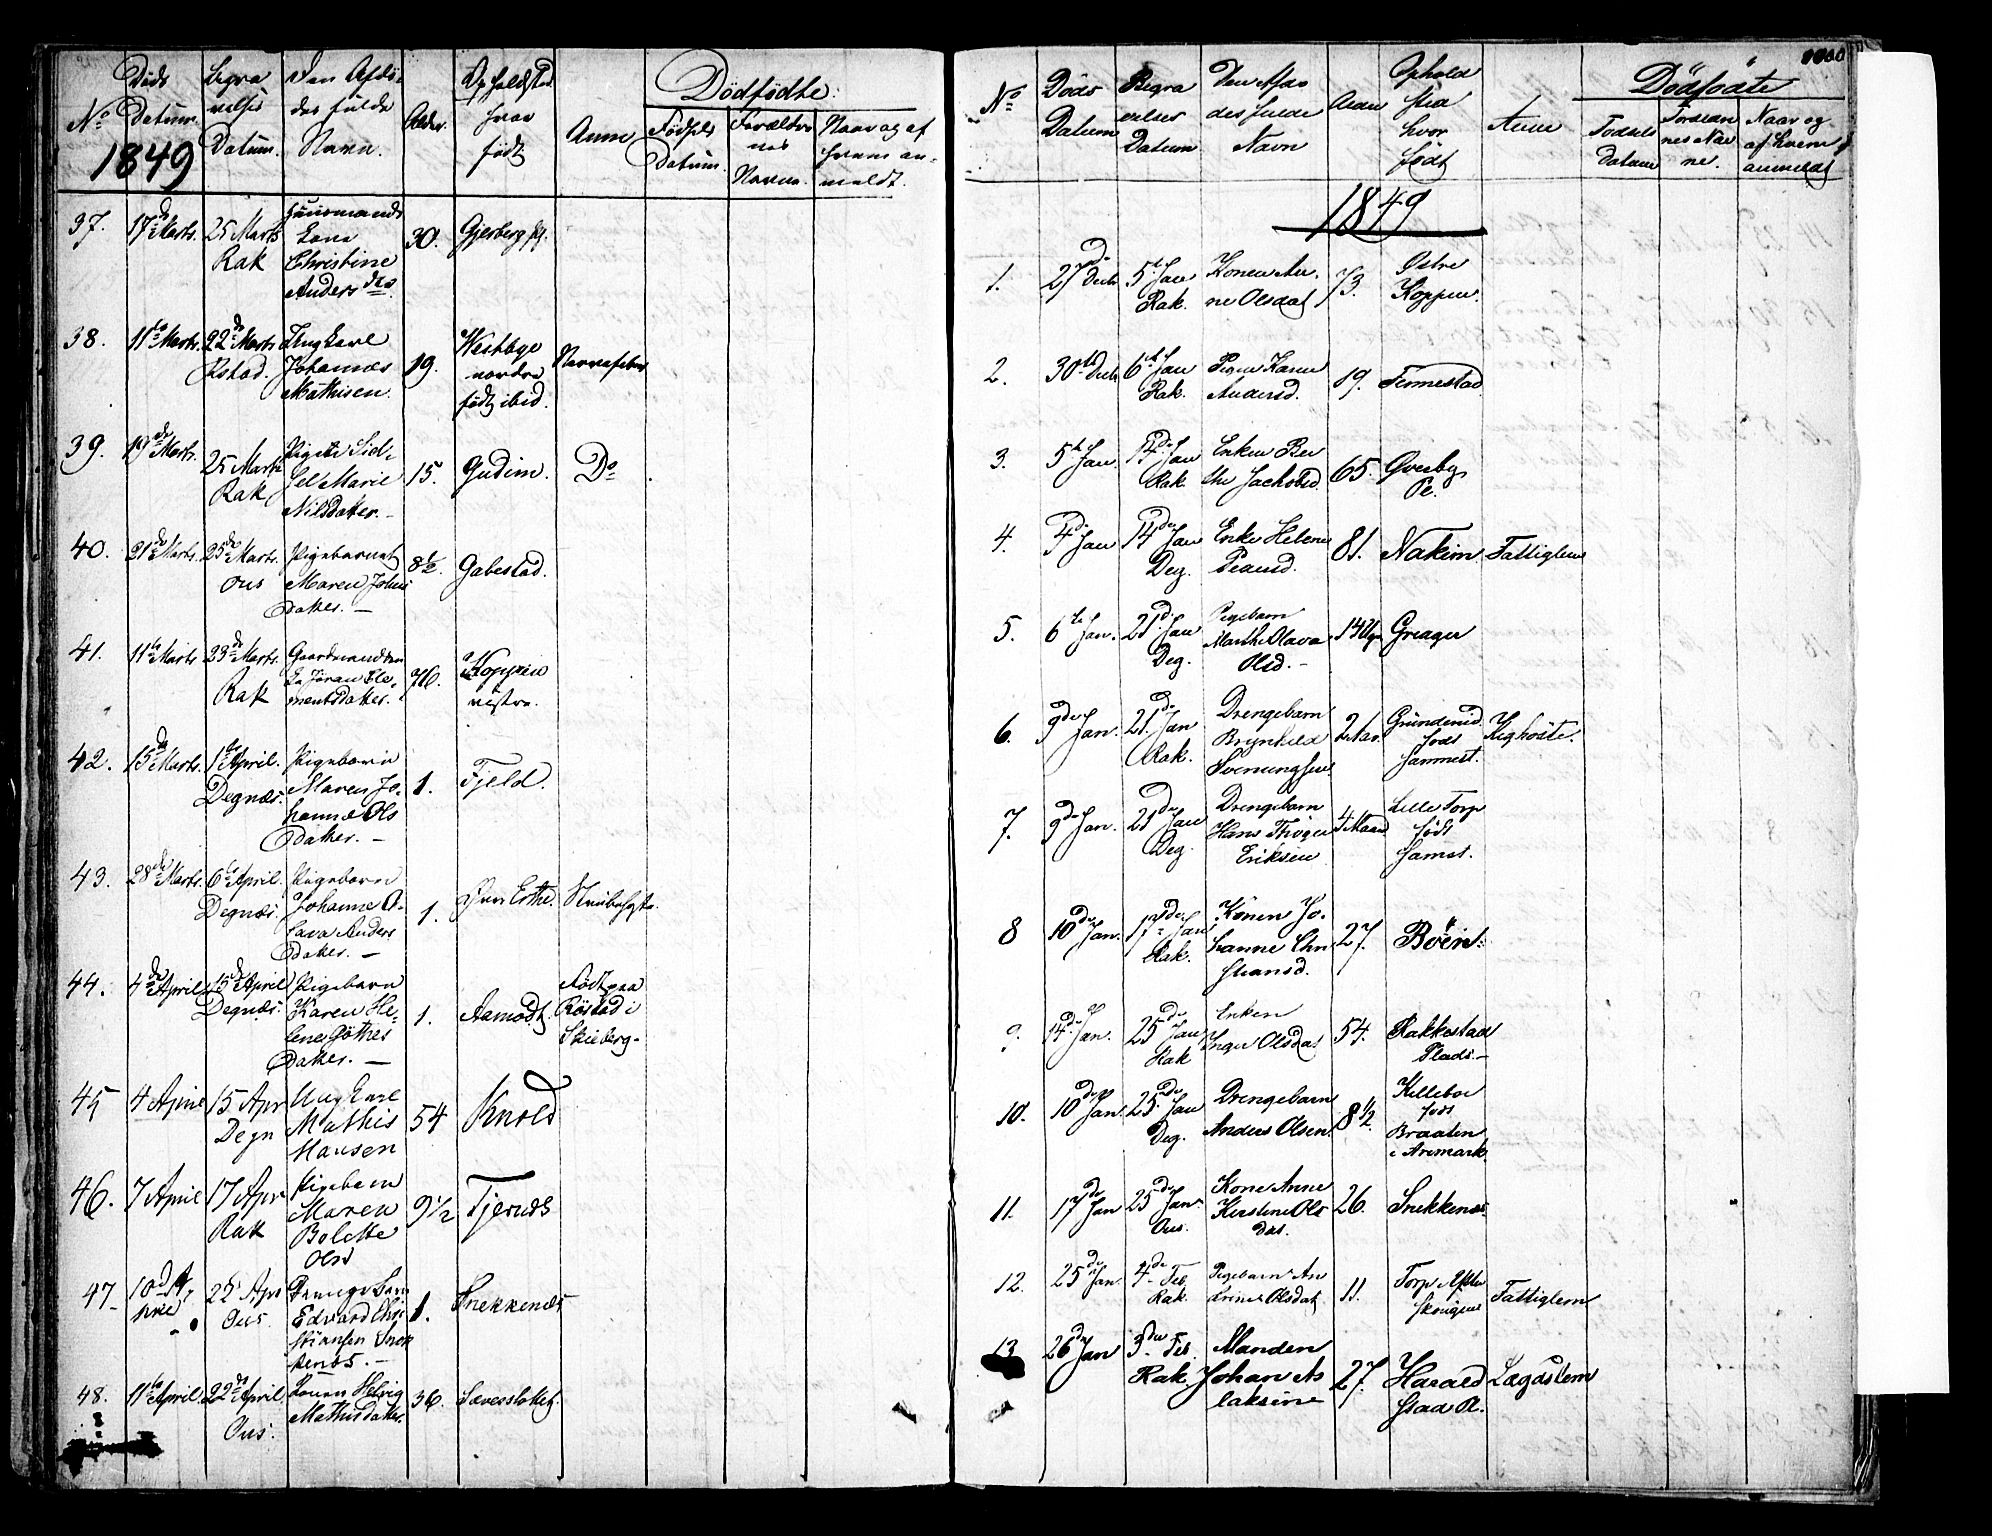 No
Døds
Datum.
Begra
velses
Datum.
Den Afdø-
des fulde
Navn.
Alder.
Opholdsted
hvor
født
Anm
Dödfödte:
Fødsels
Datum.
Forældre
nes
Navne.
Naar og af
hvem an-
meldt.
1849
37. 17de Marts. 25 Marts
Rak
Huusmands
Kone
Christine
Andersdtr
30. Gjerberg
38. 11te Marts. 22de Marts
Østad.
Ungkarl
Johannes
Mathisen.
19.
Westbye
nordre
født ibid.
39. 19de Marts.
25 Marts
Rak
Pigen Sid-
sel Marie
Nilsdatter.
15. Gudim. Do
40. 21de Marts. 25de Marts.
Ous
Pigebarnet
Maren
Datter.
8½. Gabestad.
41. 11te Marts. 23de Marts.
Rak
Gaardmand
Jöran Cle-
mentsdatter.
76.
Koppen
vestre.
42. 15de Marts. 1te April.
Degnæs.
Pigebarn
Maren Jo-
hanne Ols
Datter.
1. Fjeld.
43. 28de Marts. 6te April.
Degnæs.
Pigebarn
Johanne O-
lava Anders
Datter.
1.
44. 4de April 15de April
Degnæs.
Pigebarn
Karen He-
lene
Datter.
1. Aamodt.
Født paa
Röstad i
Skieberg
45 4 April 15 Apr
Degn
Ungkarl
Mathis
Hansen
54 Knold
46. 7 April 17 Apr
Rak
Pigebarn
Maren
Bolette
Olsd
9½ Tjernæs
47 10de A-
pril
22 Apr
Ous.
Drengebarn
Edvard Chri
stiansen Snek
kenæs.
1. Snekkenæs
48. 11te April. 22de April.
Ous.
Konen Helvig
Mathisdatter.
36.
No
Döds
Datum
Begra
velses
Datum
Den Afdø
des fulde
Navn
Alder
Ophold
sted
hvor
født
Anm
Dödfödte
Födsels
datum
Forældre
nes Nav
ne.
Naar og
af hvem
anmeldt
1849
1. 27de Decbr 5te Jan
Rak.
Konen An-
ne Olsdat
73.
Østre
Koppen.
2. 30te Decbr 6te Jan
Rak.
Pigen Karen
Andersd.
19. Temmestad
3. 5te Jan. 14de Jan
Rak.
Enken Ber
the Jacobsd.
65. Øverby
Pl.
4. 4de Jan 14de Jan
Deg.
Enke Helene
81. Nakim Fattiglem
5. 6te Jan. 21de Jan
Deg.
Pigebarn
Marthe Olava
Olsd.
14 Ugr Greager
6. 9de Jan. 21de Jan
Rak.
Drengebarn
Brynhild
Svenningsen
2 Aar.
født
sammest.
Kighoste.
7. 9de Jan. 21de Jan
Deg.
Drengebarn
Hans Thöger
Eriksen
4 Maan
Lille Torp
født
samst.
8 10de Jan. 17de Jan
Rak.
Konen Jo-
hanne Chri
stiansd.
27. Böen.
9. 14de Jan. 25de Jan
Rak
Enken
Inger Olsdat
54. Rakkestad
Plads.
10. 10de Jan 25de Jan
Deg.
Drengebarn
Anders Olsen
8½.
Killeboe
født
Braaten
i Aremark.
11. 17de Jan 25de Jan
Ous.
Kone Anne
Kirstine Ols
dat.
26. Snekkenæs.
12. 25de Jan. 4de Feb.
Rak.
Pigebarn An
drine Olsdat.
11. Torp
Fattiglem
13 26de Jan 3den Feb.
Rak.
Manden
Johan As
laksen
27. Harald
stad
Lægdslem